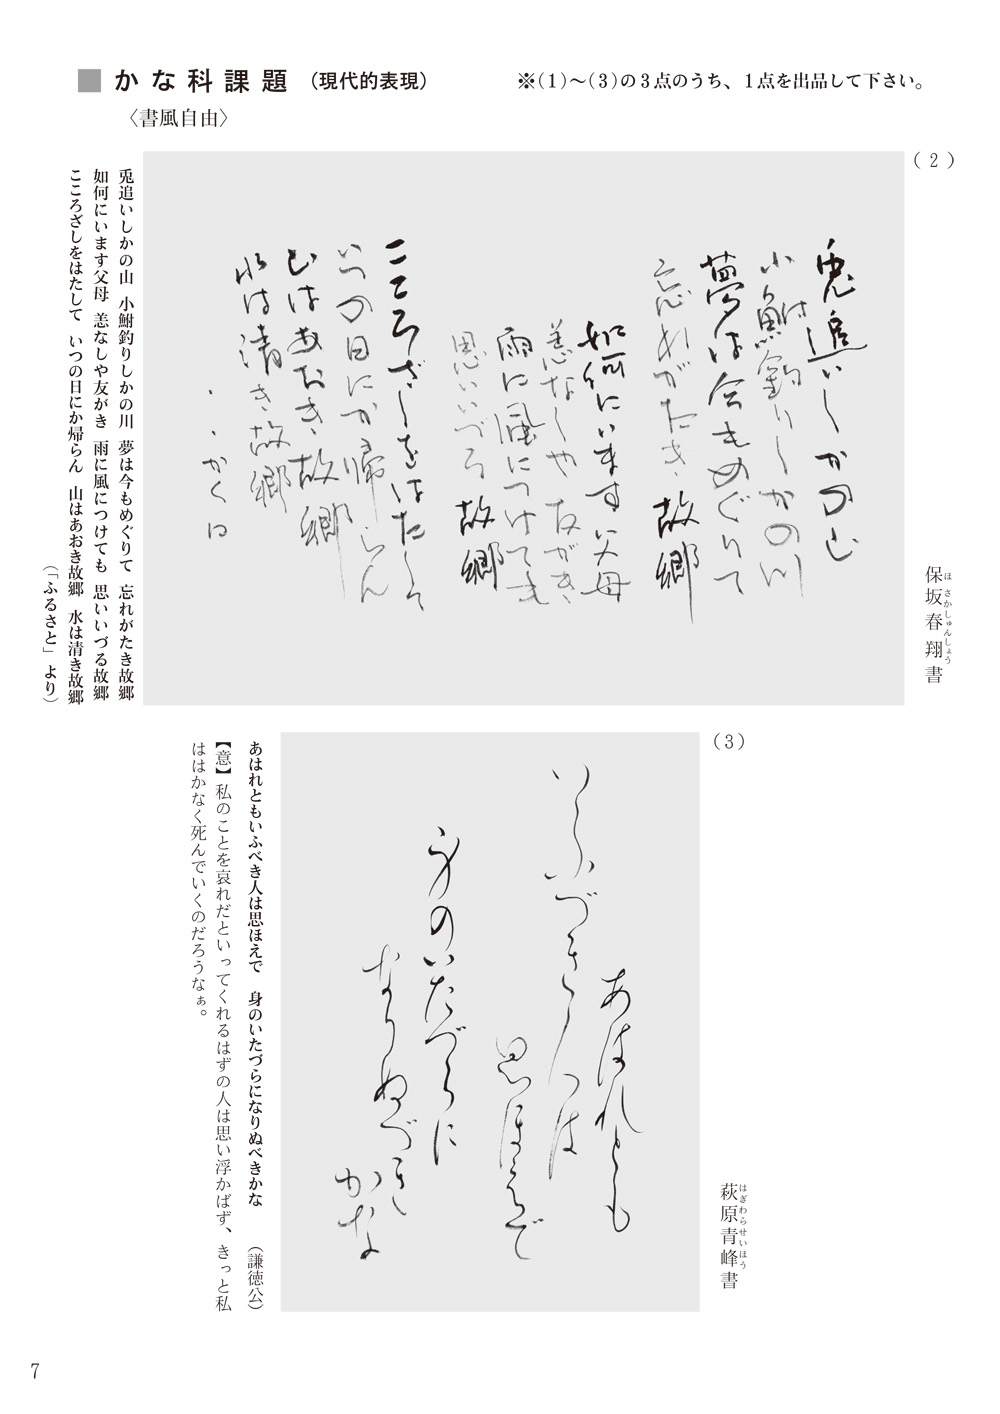 ■ かな科課題（現代的表現）
※（1）～（3）の3点のうち、1点を出品して下さい。
〈書風自由〉
（2）
兎追いしかの山
小鮒釣りしかの川
夢は今もめぐりて
忘れがたき故郷
如何にいます父母
恙なしや友がき
雨に風につけても
思いいづる故郷
こころざしをはたして
いつの日にか帰らん
山はあおき故郷
水は清き故郷
保坂春翔書
ほさかしゅんしょう
兎追いしかの山 小鮒釣りしかの川 夢は今もめぐりて 忘れがたき故郷
如何にいます父母 恙なしや友がき 雨に風につけても 思いいづる故郷
こころざしをはたして いつの日にか帰らん 山はあおき故郷 水は清き故郷
（「ふるさと」より）
（3）
あはれとも
いふべき人は
思ほえで
身のいたづらに
なりぬべき
かな
萩原青峰書
はぎわらせいほう
あはれともいふべき人は思ほえで 身のいたづらになりぬべきかな （謙徳公）
【意】私のことを哀れだといってくれるはずの人は思い浮かばず、きっと私
ははかなく死んでいくのだろうなぁ。
7